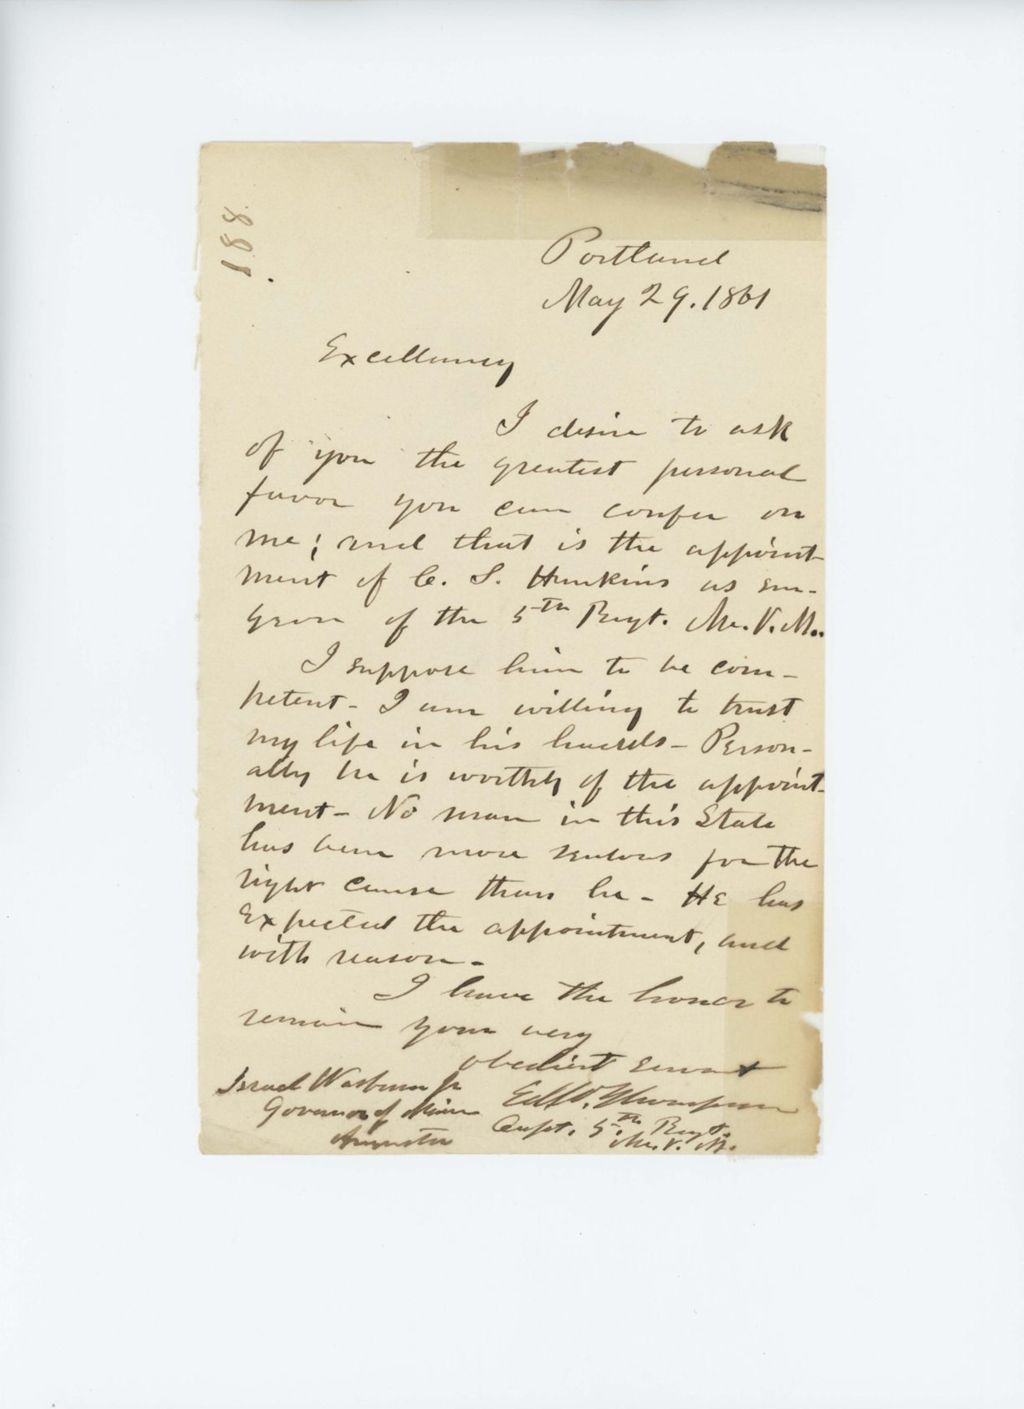 188
Portland
May 29. 1861
Excellency
I desire to ask
of you the greatest personal
favor you can confer on
me; and that is the appoint-
ment of C. S. Hunkins as sur-
geon of the 5th Regt. Me. V. M.
I suppose him to be com-
petent - I am willing to trust
my life in his hands - Person-
ally he is worthy of the appoint-
ment - No man in this State
has been more zealous for the
right cause than he - He has
expected the appointment, and
with reason -
I have the honor to
remain your very
obedient servant
Edw. Thompson
Capt. 5th Regt.
Me. V. M.
Israel Washburn Jr
Governor of Maine
Augusta